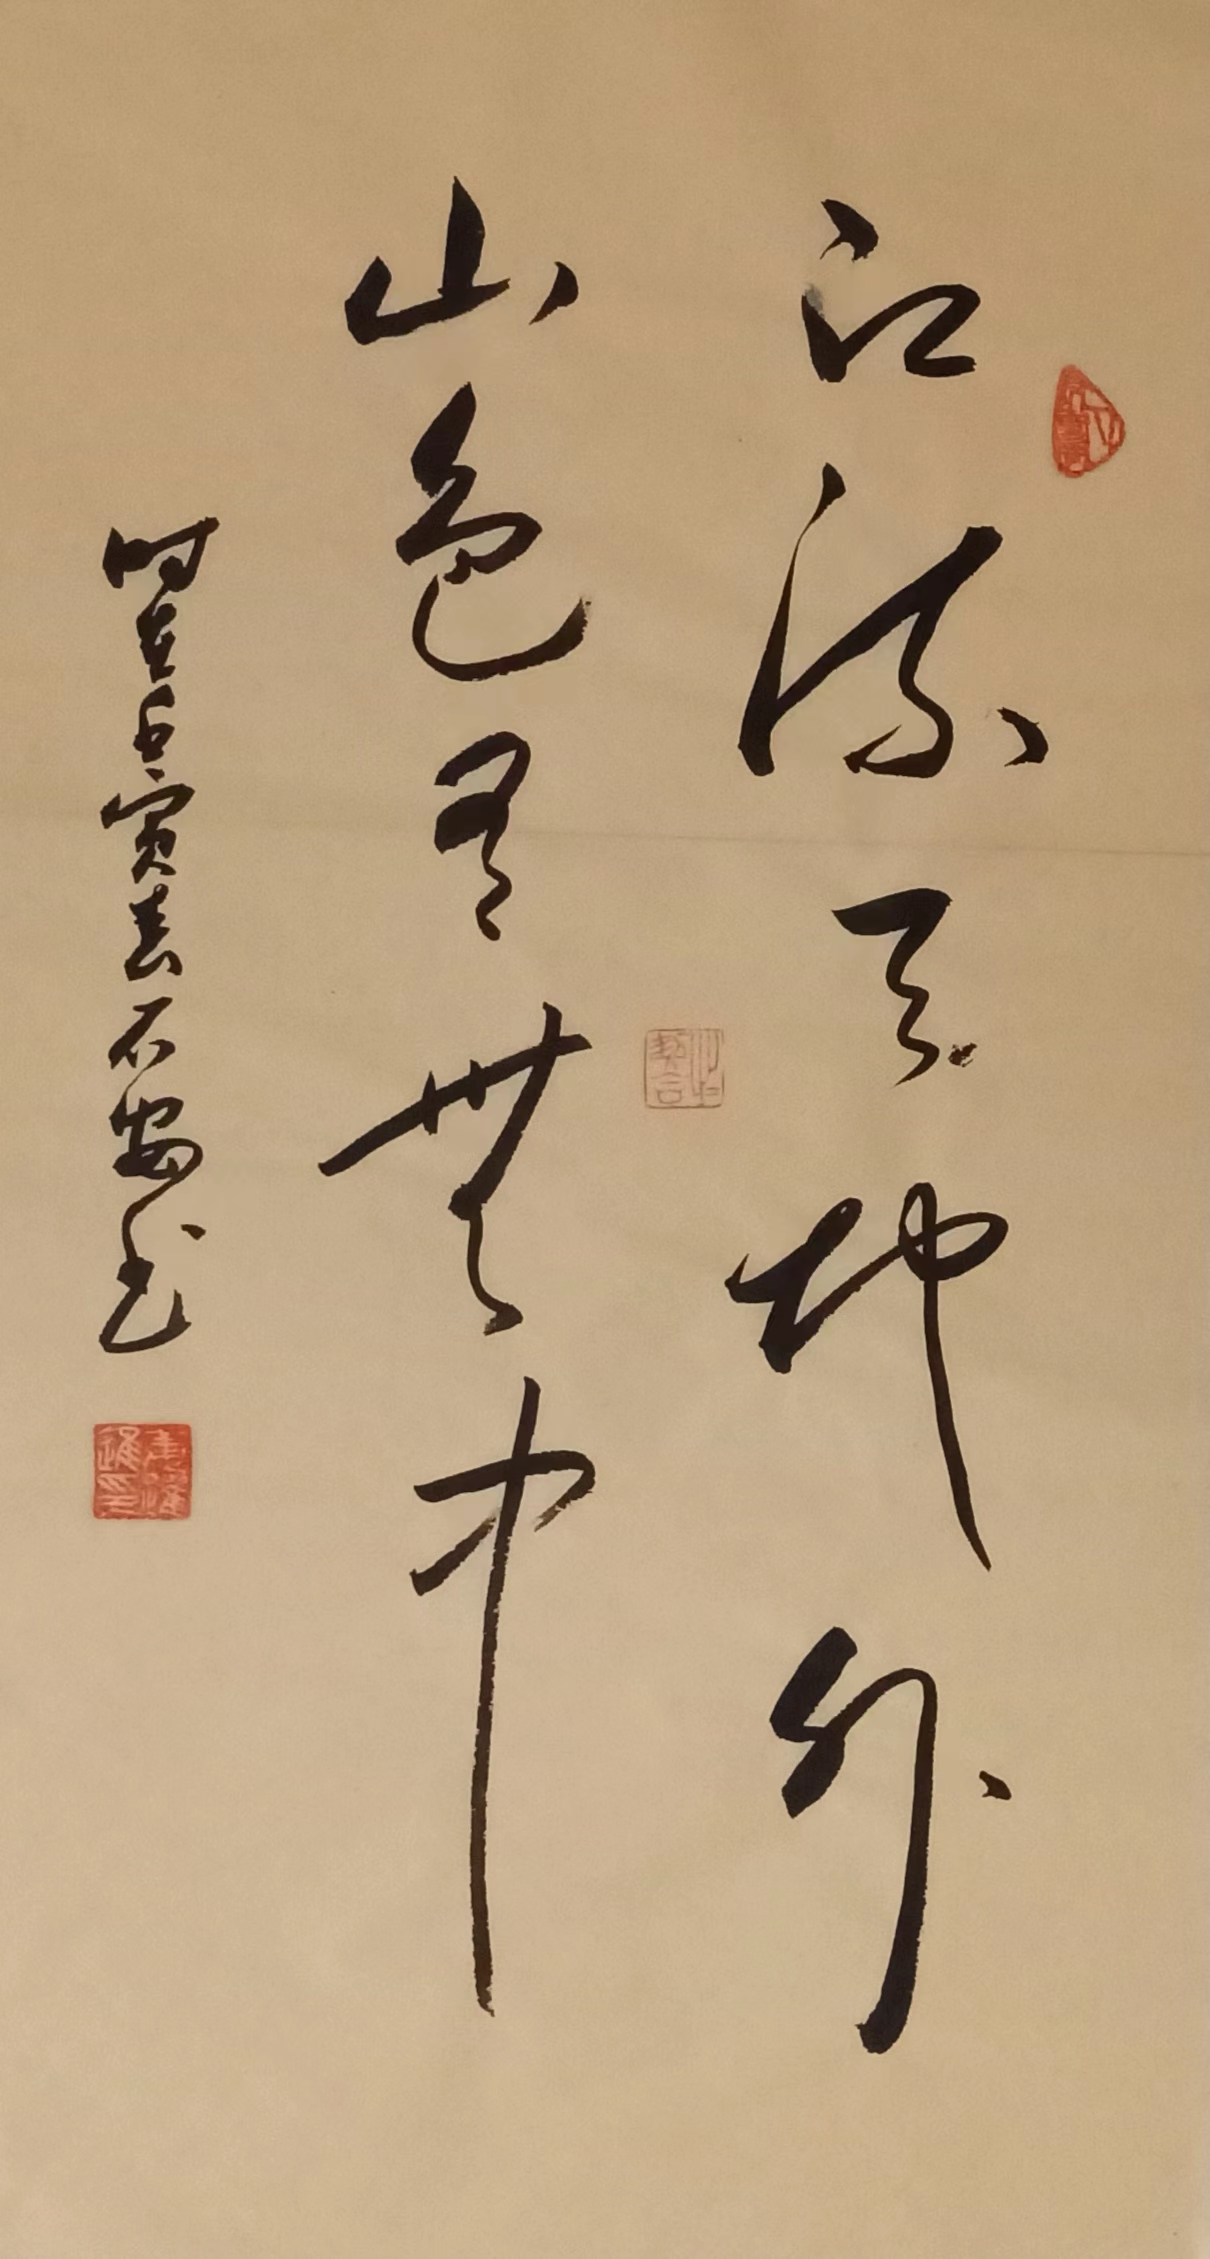 江流天地外
山色有无中
时在壬寅春石安书